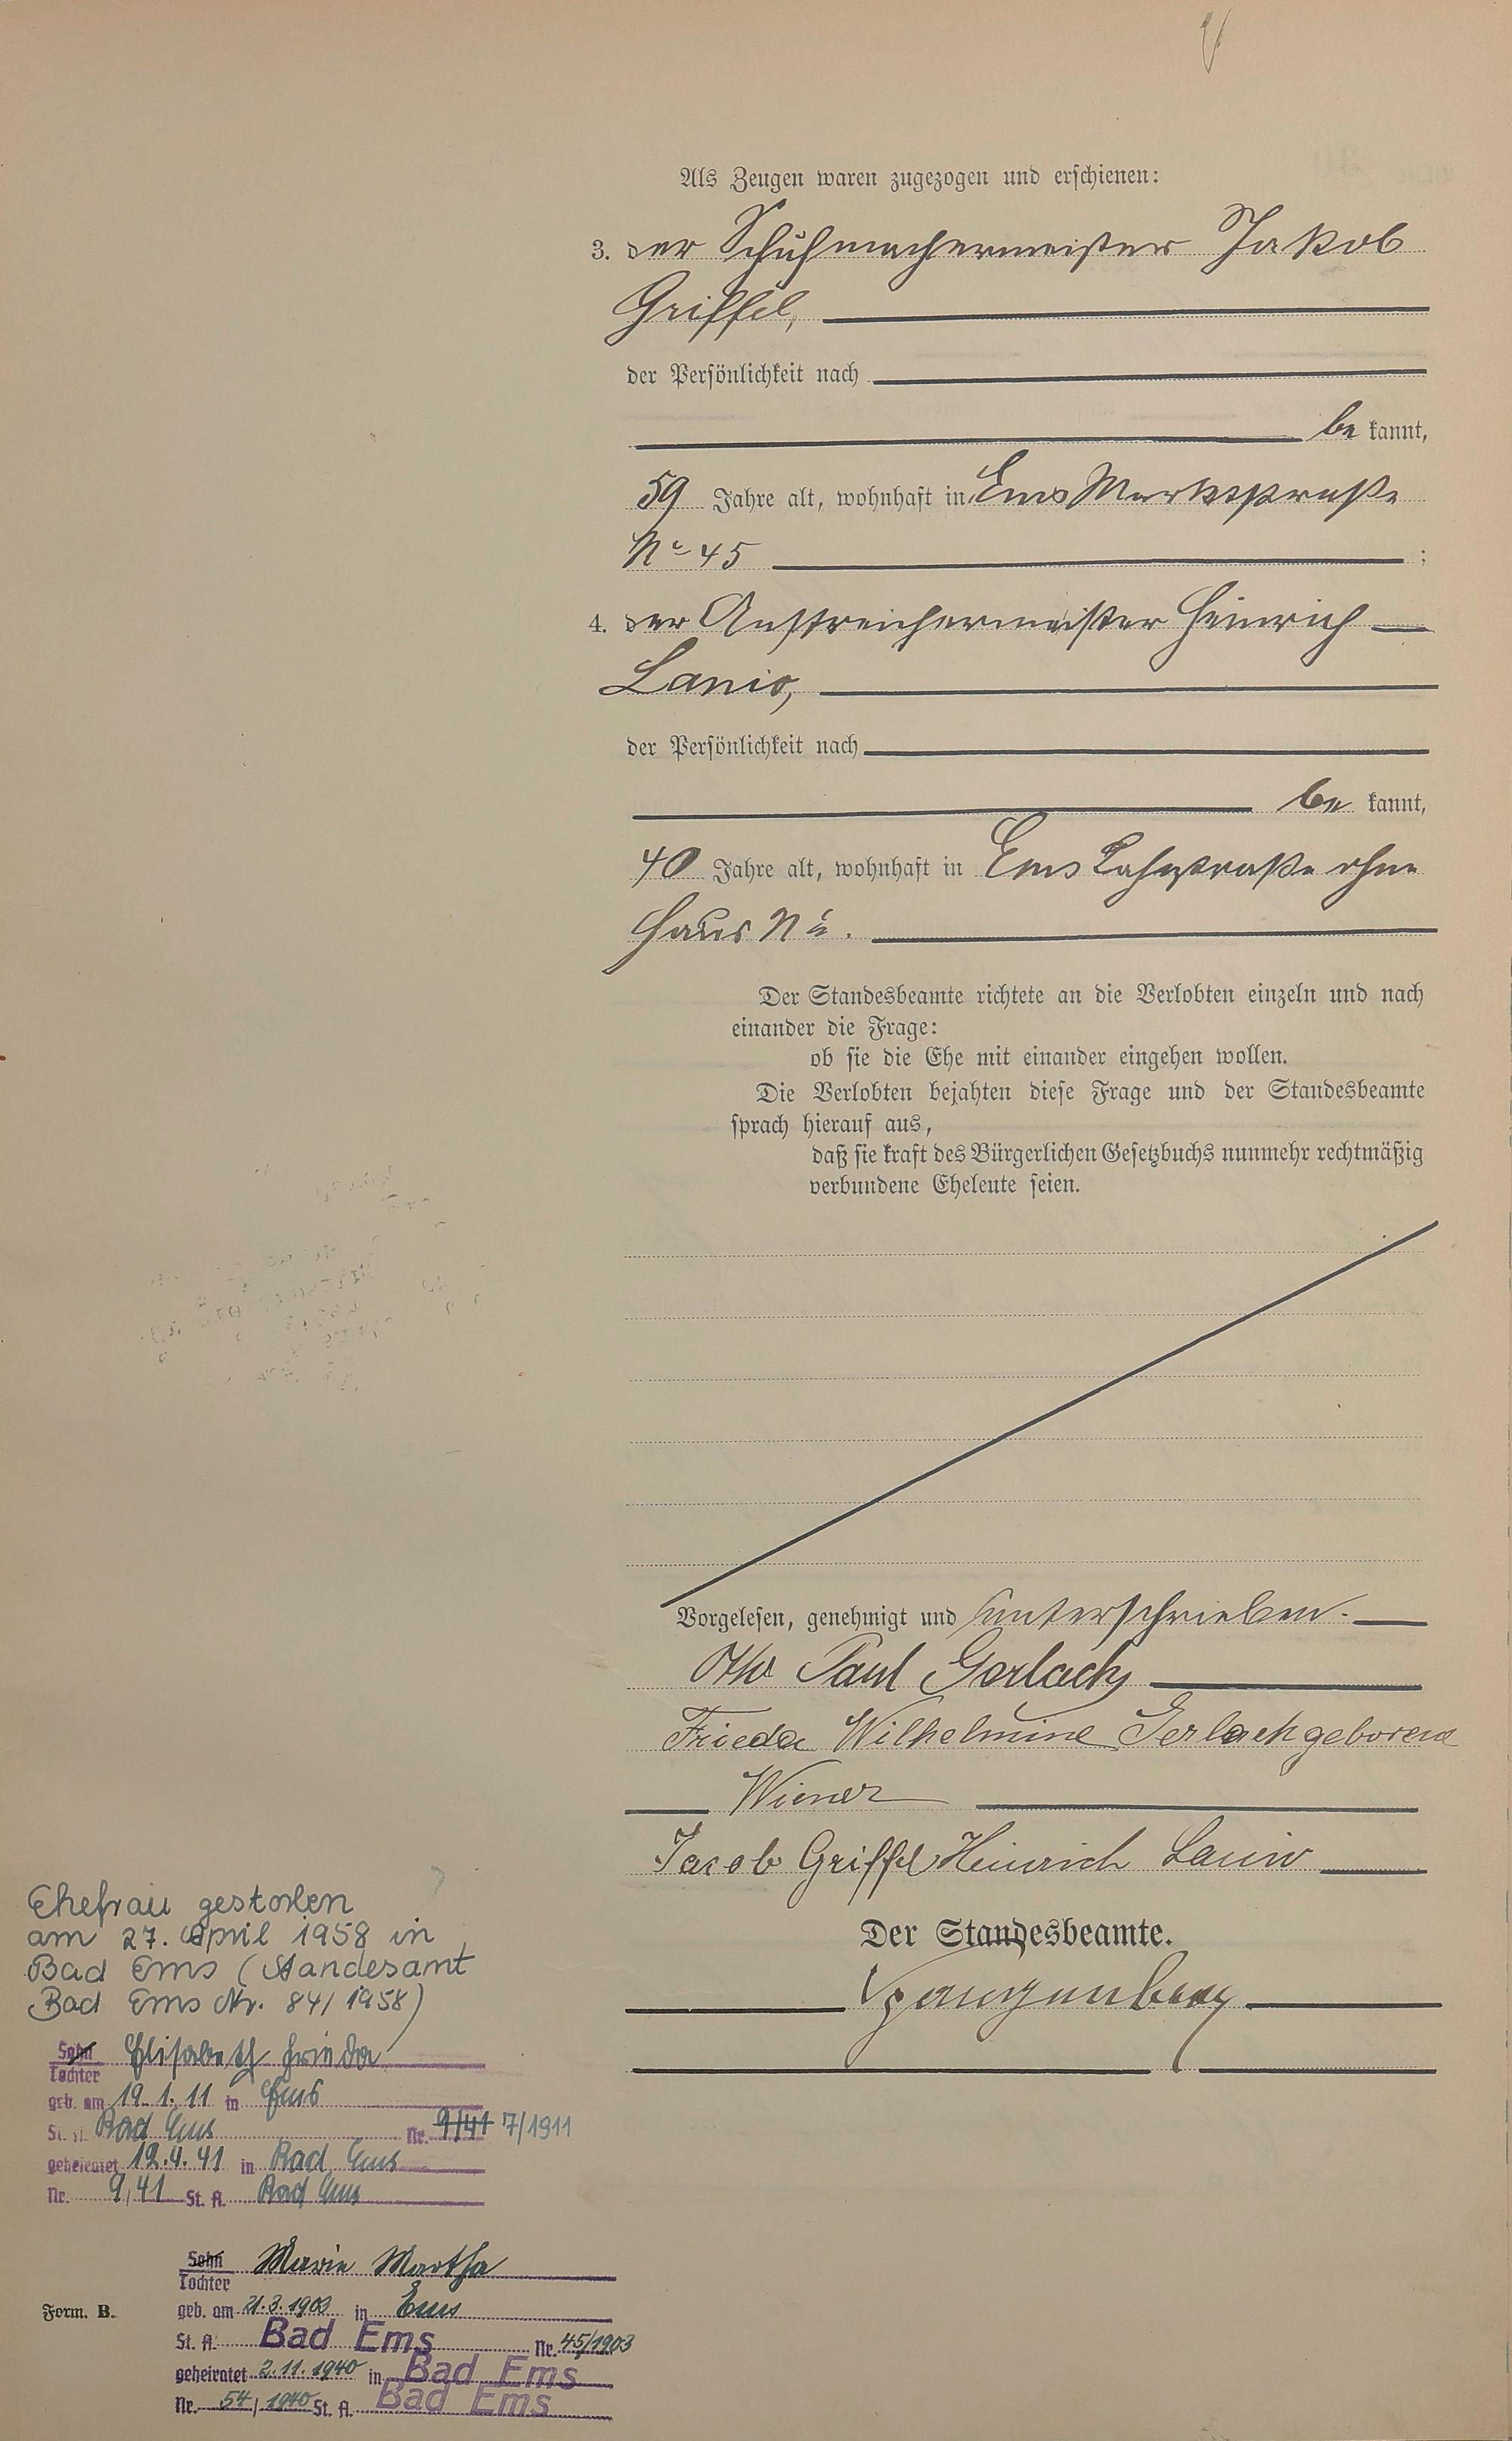 Als Zeugen waren zugezogen und erschienen:
3. der Schuhmachermeister Jakob
Griffel,
der Persönlichkeit nach
be kannt,
59 Jahre alt, wohnhaft in Ems Marktstraße
No 45 ;
4. der Anstreichermeister Heinrich
Lanio,
der Persönlichkeit nach
be kannt,
40 Jahre alt, wohnhaft in Ems Lahnstraße ohne
Haus No.
Der Standesbeamte richtete an die Verlobten einzeln und nach
einander die Frage:
ob sie die Ehe mit einander eingehen wollen.
Die Verlobten bejahten diese Frage und der Standesbeamte
sprach hierauf aus,
daß sie kraft des Bürgerlichen Gesetzbuchs nunmehr rechtmäßig
verbundene Eheleute seien.
Vorgelesen, genehmigt und unterschrieben.
Otto Paul Gerlach
Frieda Wilhelmine Gerlach geborene
Wiener
Jacob Griffel Heinrich Lanio
Der Standesbeamte.
Spangenberg
Ehefrau gestorben
am 27. April 1958 in
Bad Ems (Standesamt
Bad Ems Nr. 84/1958)
Sohn
Tochter Elisabeth Frieda
geb. am 19.1.11 in Ems
St. A. Bad Ems Nr. 9/41 7/1911
geheiratet 12.4.41 in Bad Ems
Nr. 9/41 St. A. Bad Ems
Sohn
Tochter Marie Martha
geb. am 21.3.1903 in Ems
St. A. Bad Ems Nr. 45/1903
geheiratet 2.11.1940 in Bad Ems
Nr. 54/1940 St. A. Bad Ems
Form. B.